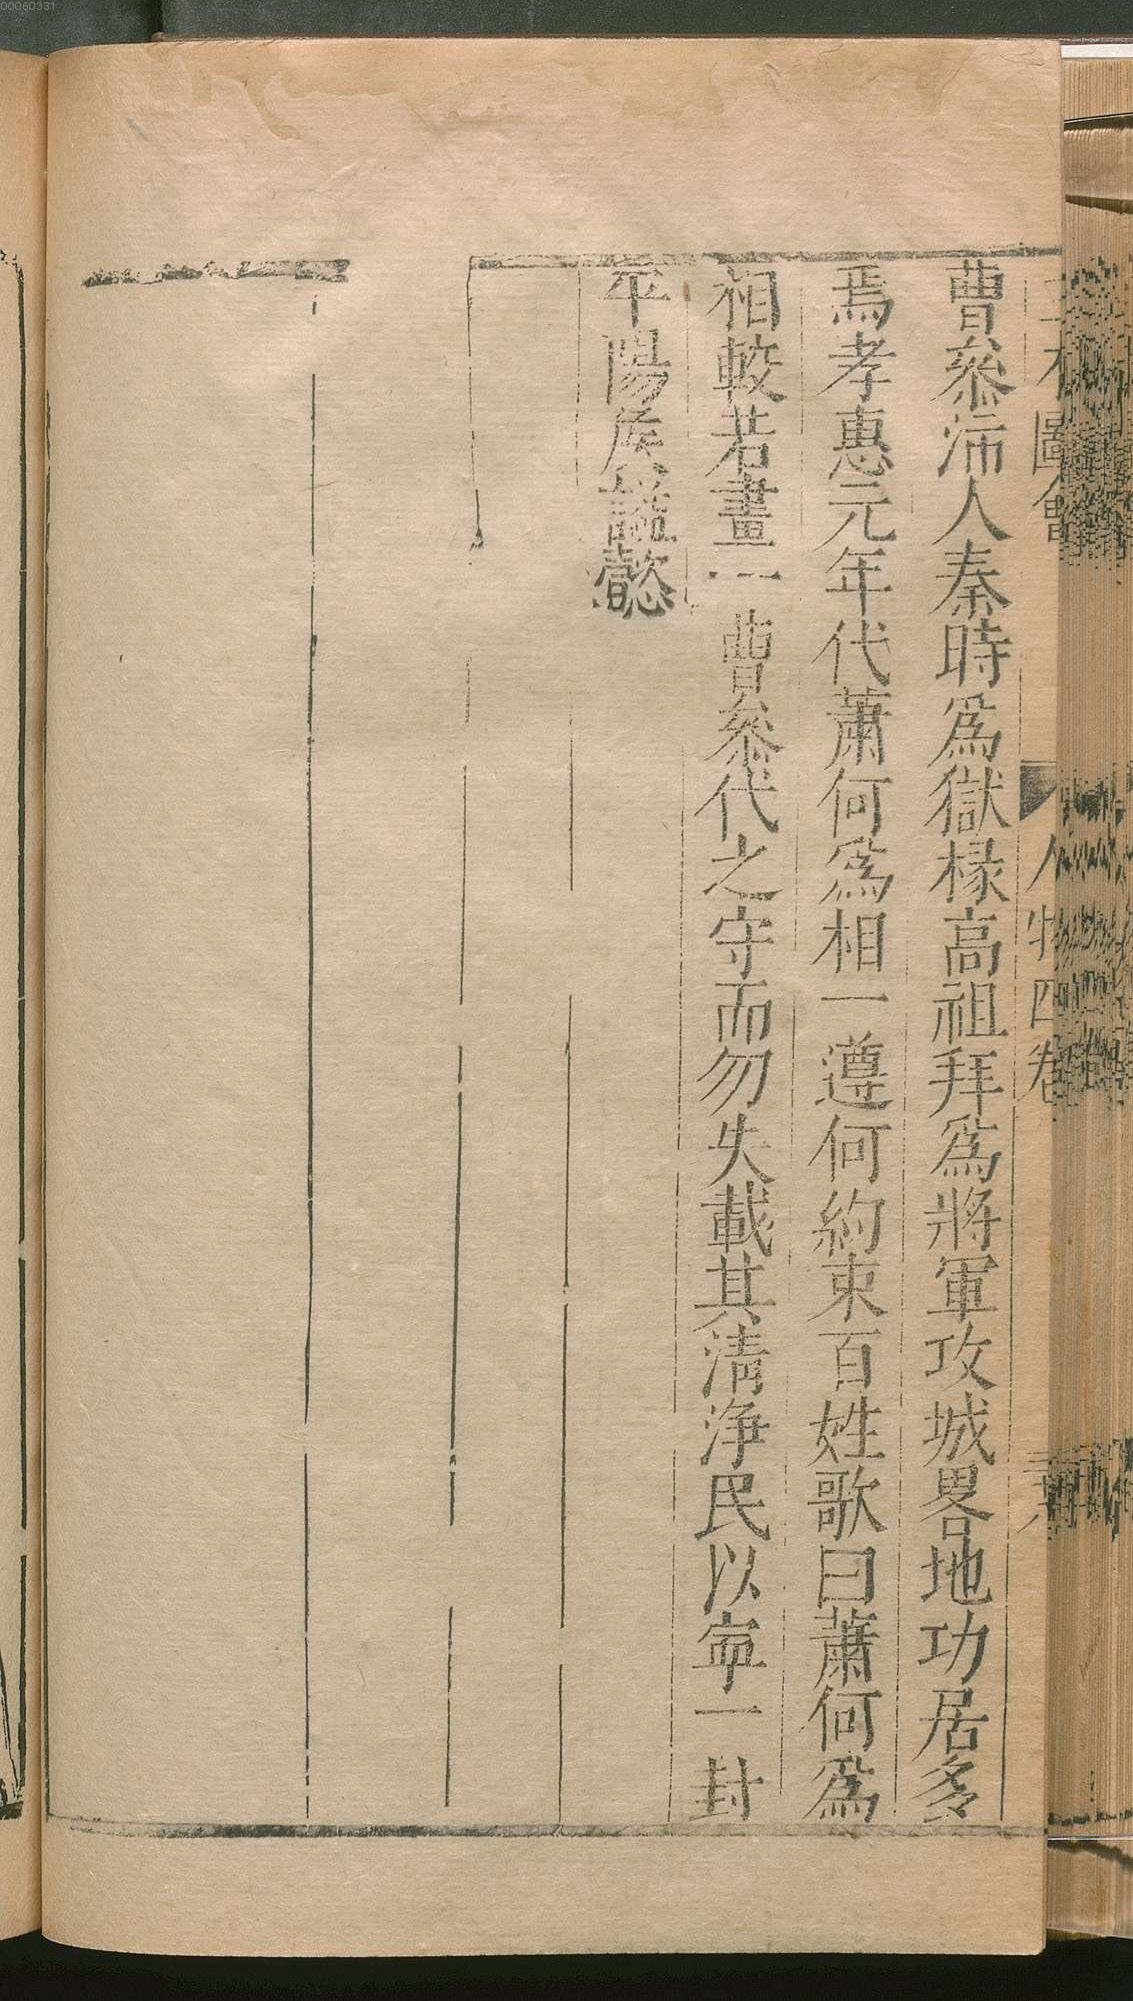 00060331
圖會
人物四卷
曹叅沛人秦時爲獄椽高祖拜爲將軍攻城畧地功居多
焉孝惠元年代蕭何爲相一遵何約束百姓歌曰蕭何爲
相較若畫一曹叅代之守而勿失載其清浄民以寧一封
平陽矦謚懿